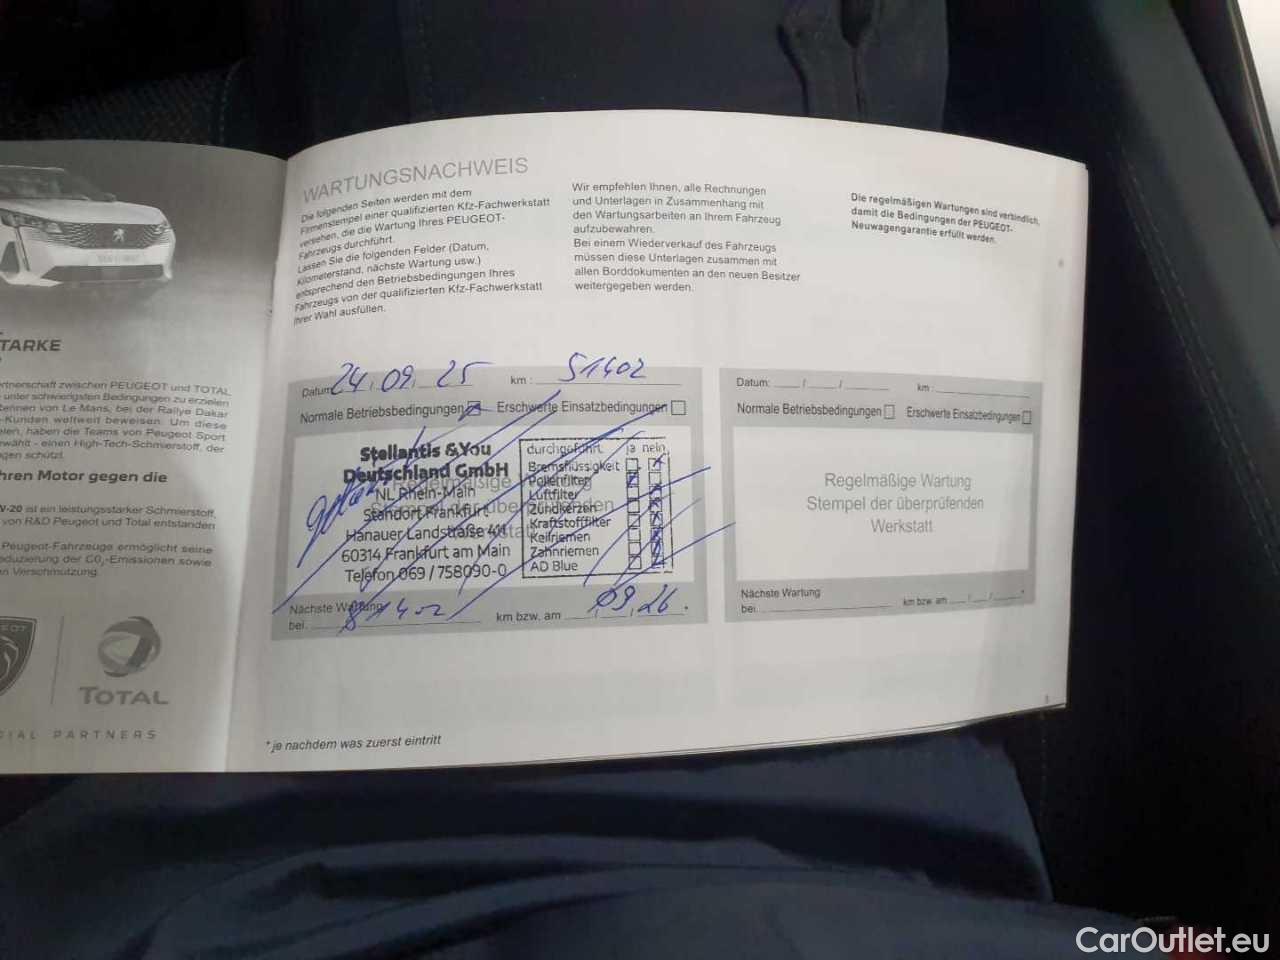 TARKE
rtnerschaft zwischen PEUGEOT und TOTAL
unter schwierigsten Bedingungen zu erzielen
ennen von Le Mans, bei der Rallye Dakar
-Kunden weltweit beweisen. Um diese
elen, haben die Teams von Peugeot Sport
ewählt - einen High-Tech-Schmierstoff, der
ngen schützt.
hren Motor gegen die
V-20 ist ein leistungsstarker Schmierstoff,
von R&D Peugeot und Total entstanden
Peugeot-Fahrzeuge ermöglicht seine
eduzierung der CO₂-Emissionen sowie
en Verschmutzung.
TOTAL
IAL PARTNERS
WARTUNGSNACHWEIS
Die folgenden Seiten werden mit dem
Firmenstempel einer qualifizierten Kfz-Fachwerkstatt
versehen, die die Wartung Ihres PEUGEOT-
Fahrzeugs durchführt.
Lassen Sie die folgenden Felder (Datum,
Kilometerstand, nächste Wartung usw.)
entsprechend den Betriebsbedingungen Ihres
Fahrzeugs von der qualifizierten Kfz-Fachwerkstatt
Ihrer Wahl ausfüllen.
Wir empfehlen Ihnen, alle Rechnungen
und Unterlagen in Zusammenhang mit
den Wartungsarbeiten an Ihrem Fahrzeug
aufzubewahren.
Bei einem Wiederverkauf des Fahrzeugs
müssen diese Unterlagen zusammen mit
allen Borddokumenten an den neuen Besitzer
weitergegeben werden.
Die regelmäßigen Wartungen sind verbindlich,
damit die Bedingungen der PEUGEOT-
Neuwagengarantie erfüllt werden.
Datum: 24.09.25 km : 51402
Normale Betriebsbedingungen Erschwerte Einsatzbedingungen
Stellantis & You
Deutschland GmbH
NL Rhein-Main
Standort Frankfurt
Hanauer Landstraße 411
60314 Frankfurt am Main
Telefon 069 / 758090-0
durchgeführt ja nein
Bremsflüssigkeit
Pollenfilter
Luftfilter
Zündkerzen
Kraftstofffilter
Keilriemen
Zahnriemen
AD Blue
Nächste Wartung
bei. 81402 km bzw. am 09.26.
Datum: / / km :
Normale Betriebsbedingungen Erschwerte Einsatzbedingungen
Regelmäßige Wartung
Stempel der überprüfenden
Werkstatt
Nächste Wartung
bei. km bzw. am / / *
* je nachdem was zuerst eintritt
CarOutlet.eu